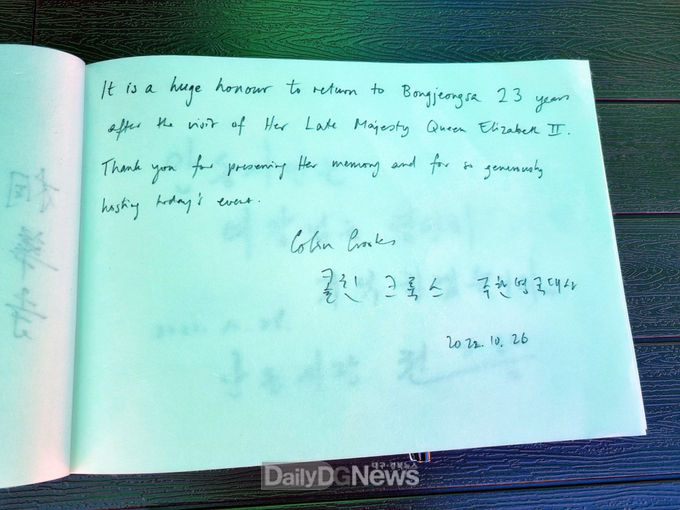 It is a huge honour to return to Bongjeongsa 23 years
after the visit of Her Late Majesty Queen Elizabeth II.
Thank you for preserving Her memory and for so generously
hosting today's event.
Colin Crooks
콜린 크룩스 주한영국대사
2022.10.26
대구·경북뉴스
DailyDGNews